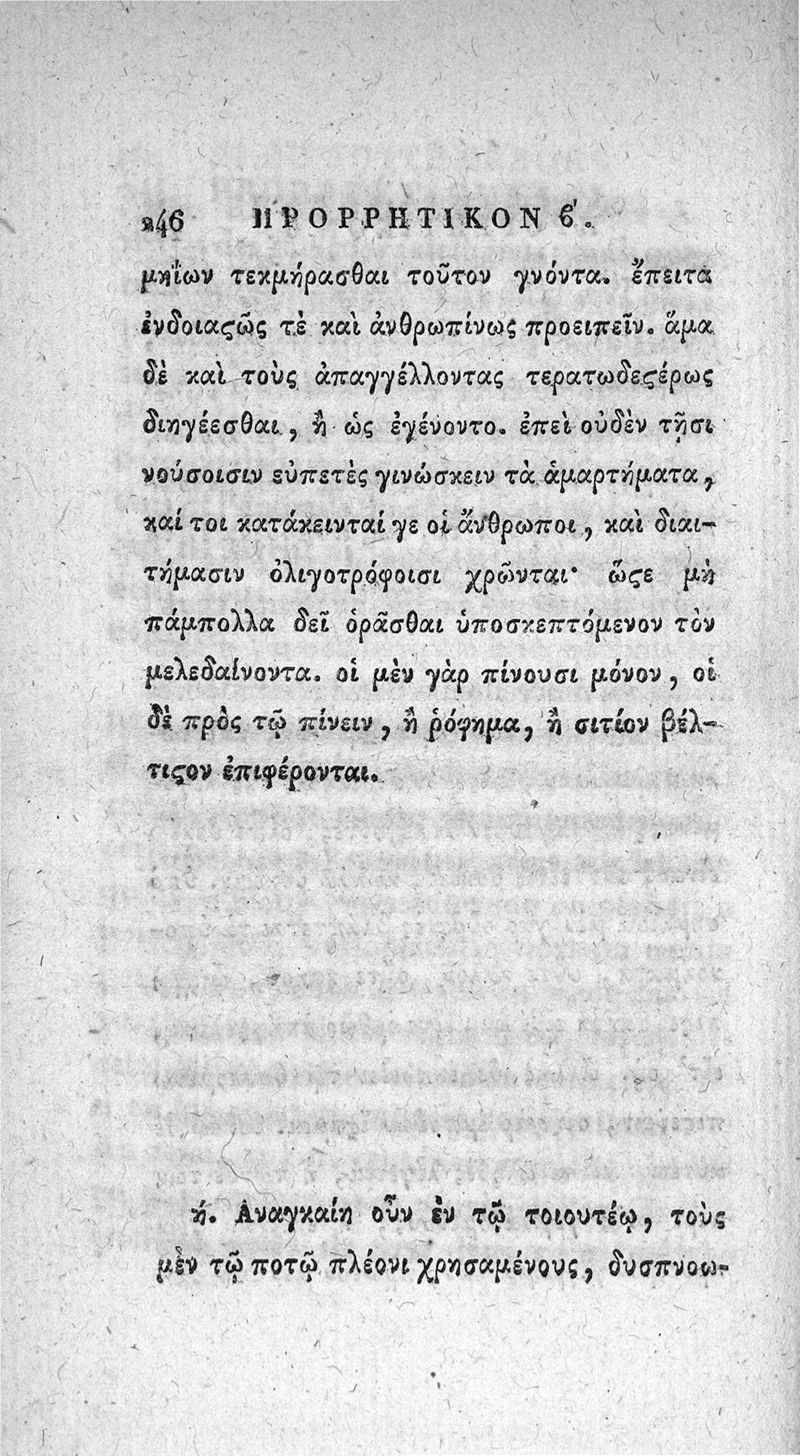 246 ΠΡΟΡΡΗΤΙΚΟΝ ϐ΄.
μηΐων τεκμήρασθαι τοῦτον γνόντα. ἔπειτα
ἐνδοιαϛῶς τὲ καὶ ἀνθρωπίνως προειπεῖν. ἅμα
δὲ καὶ τοὺς ἀπαγγέλλοντας τερατωδεϛέρως
διηγέεσθαι, ἢ ὡς ἐγένοντο. ἐπεὶ οὐδὲν τῇσι
νούσοισιν εὐπετὲς γινώσκειν τὰ ἁμαρτήματα,
καί τοι κατάκεινταί γε οἱ ἄνθρωποι, καὶ διαι-
τήμασιν ὀλιγοτρόφοισι χρῶνται· ὥϛε μὴ
πάμπολλα δεῖ ὁρᾶσθαι ὑποσκεπτόμενον τὸν
μελεδαίνοντα. οἱ μὲν γὰρ πίνουσι μόνον, οἱ
δὲ πρὸς τῷ πίνειν, ἢ ῥόφημα, ἢ σιτίον βέλ-
τιϛον ἐπιφέρονται.
ή. Ἀναγκαίη οὖν ἐν τῷ τοιουτέῳ, τοὺς
μὲν τῷ ποτῷ πλέονι χρησαμένους, δυσπνοω-